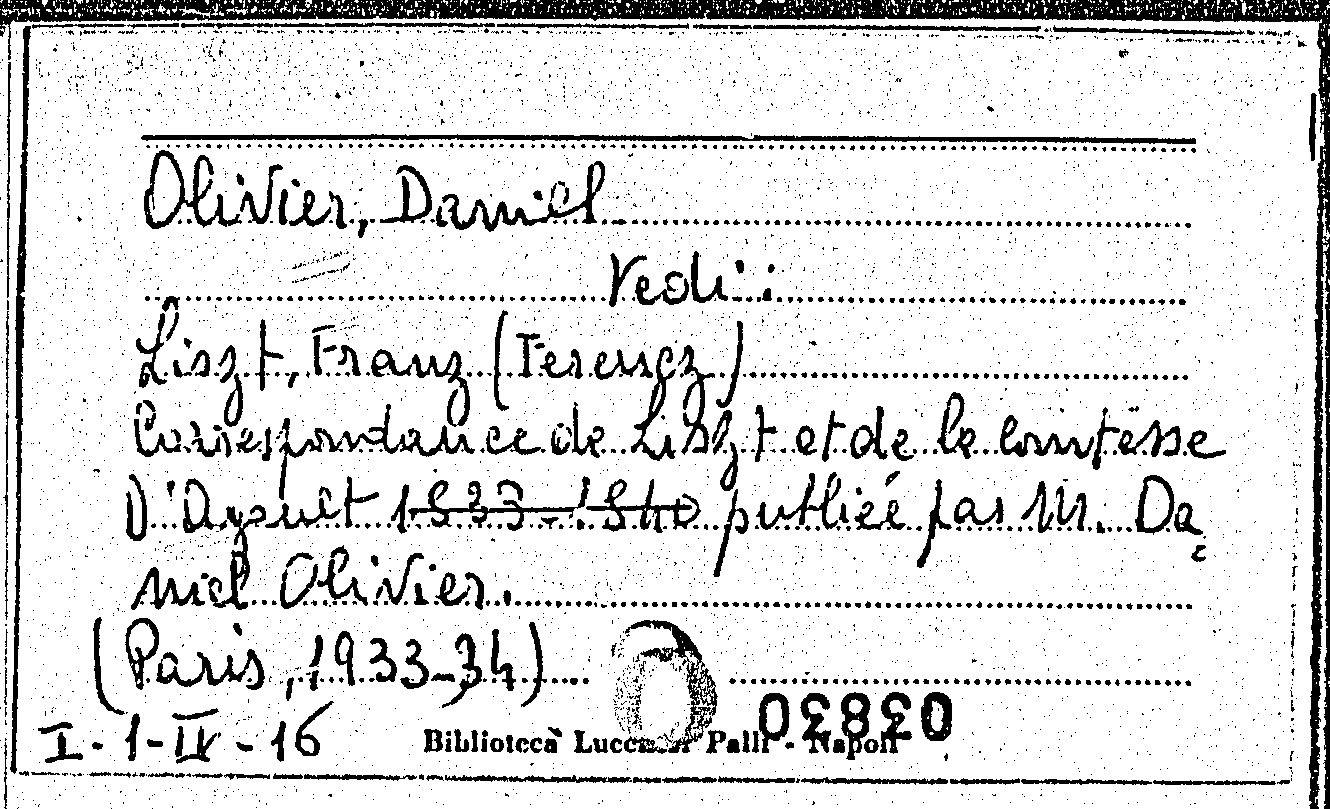 Olivier, Daniel
Vedi:
Liszt, Franz (Ferencz)
Correspondance de Liszt et de la Comtesse
D'Agoult 1833-1840 publiée par M. Da
niel Olivier.
(Paris, 1933-34)
I-1-IV-16
Biblioteca Lucchesi Palli - Napoli